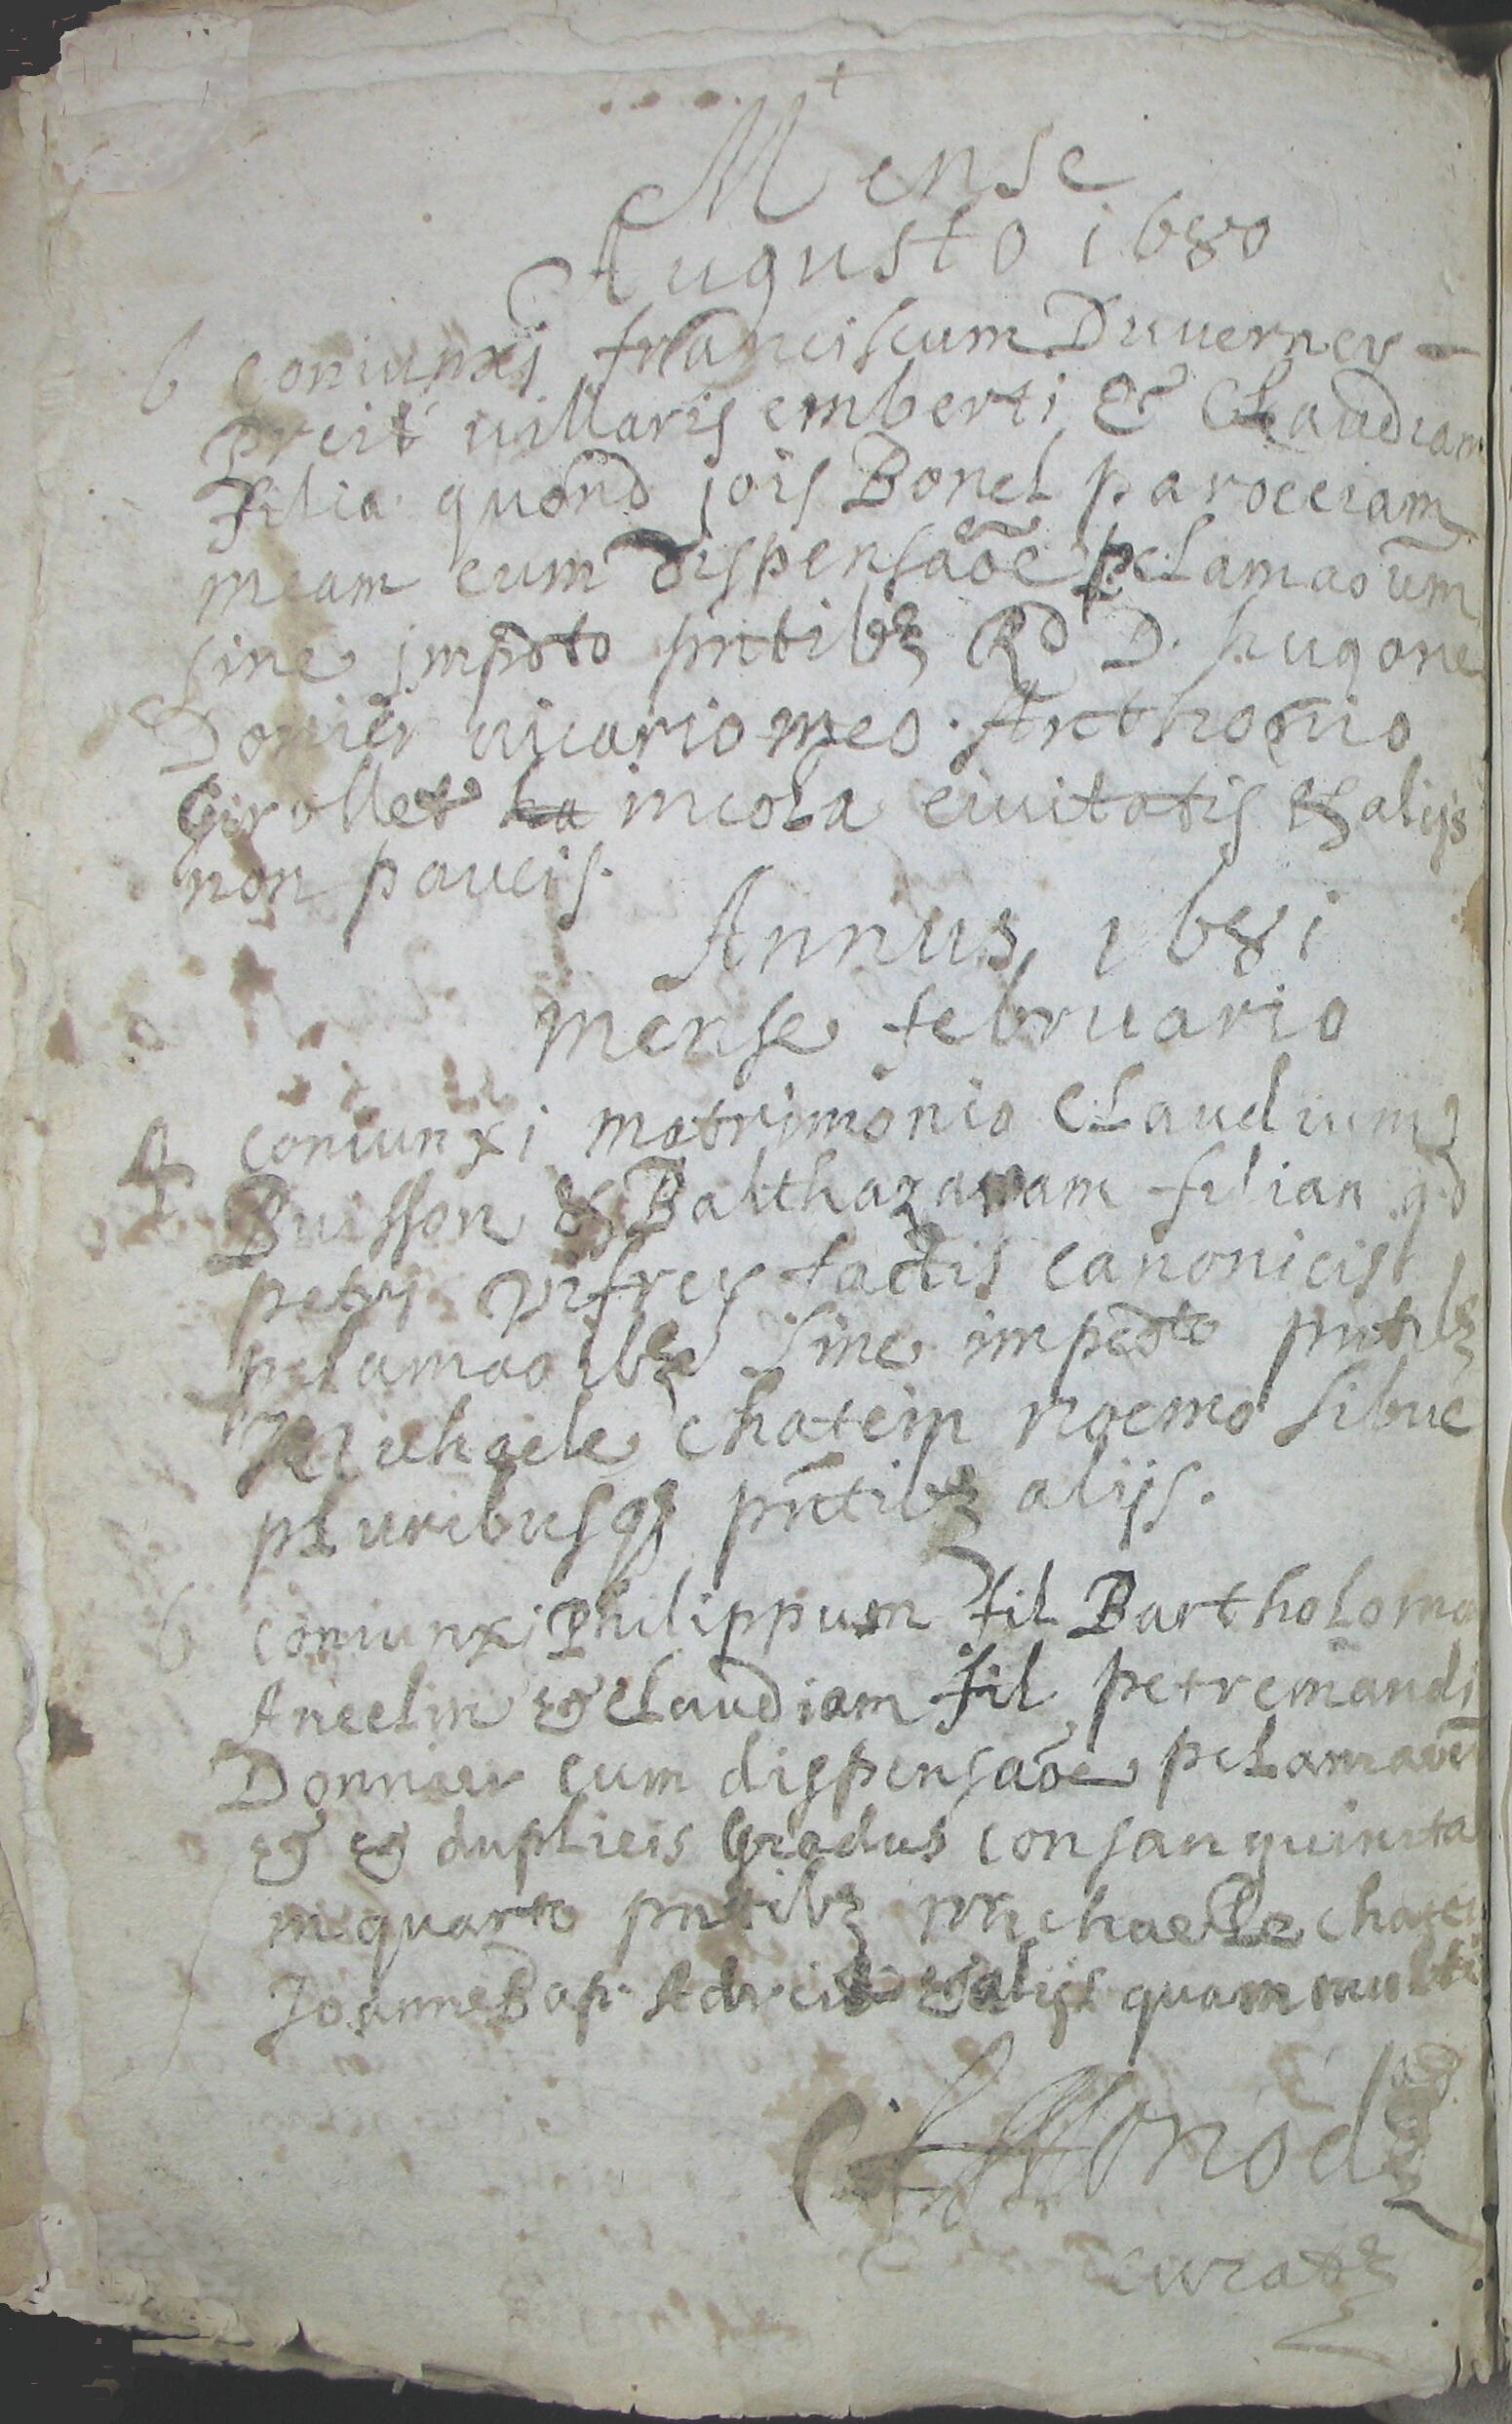 Mense
Augusto 1680
6 coniunxi franciscum Duverney
villaris emberti & Claudiam
filia quond jois Bonel paroeciam
meam cum dispensaõe pclamaoum
sine impdto pntibz Rd D. hugone
Donier vicario meo. Anthonio
Girollet incola civitatis & alijs
non paucis.
Annus 1681
mense februario
4 coniunxi matrimonio Claudium
Buisson & Balthazaram filian qd
petri factis canonicis
pclamaoibz sine impedto pntibz
Michaele chatein noemo sibue
pluribusqz pntibz alijs.
6 coniunxi Philippum fil Bartholomei
Ancelin & Claudiam fil petremandi
Donnier cum dispensaõe pclamaõu
& & duplicis Gradus consanguinita
in quarto pntibz Michaele chatei
Joanne Bap & alijs quam multi
Monod
curatz